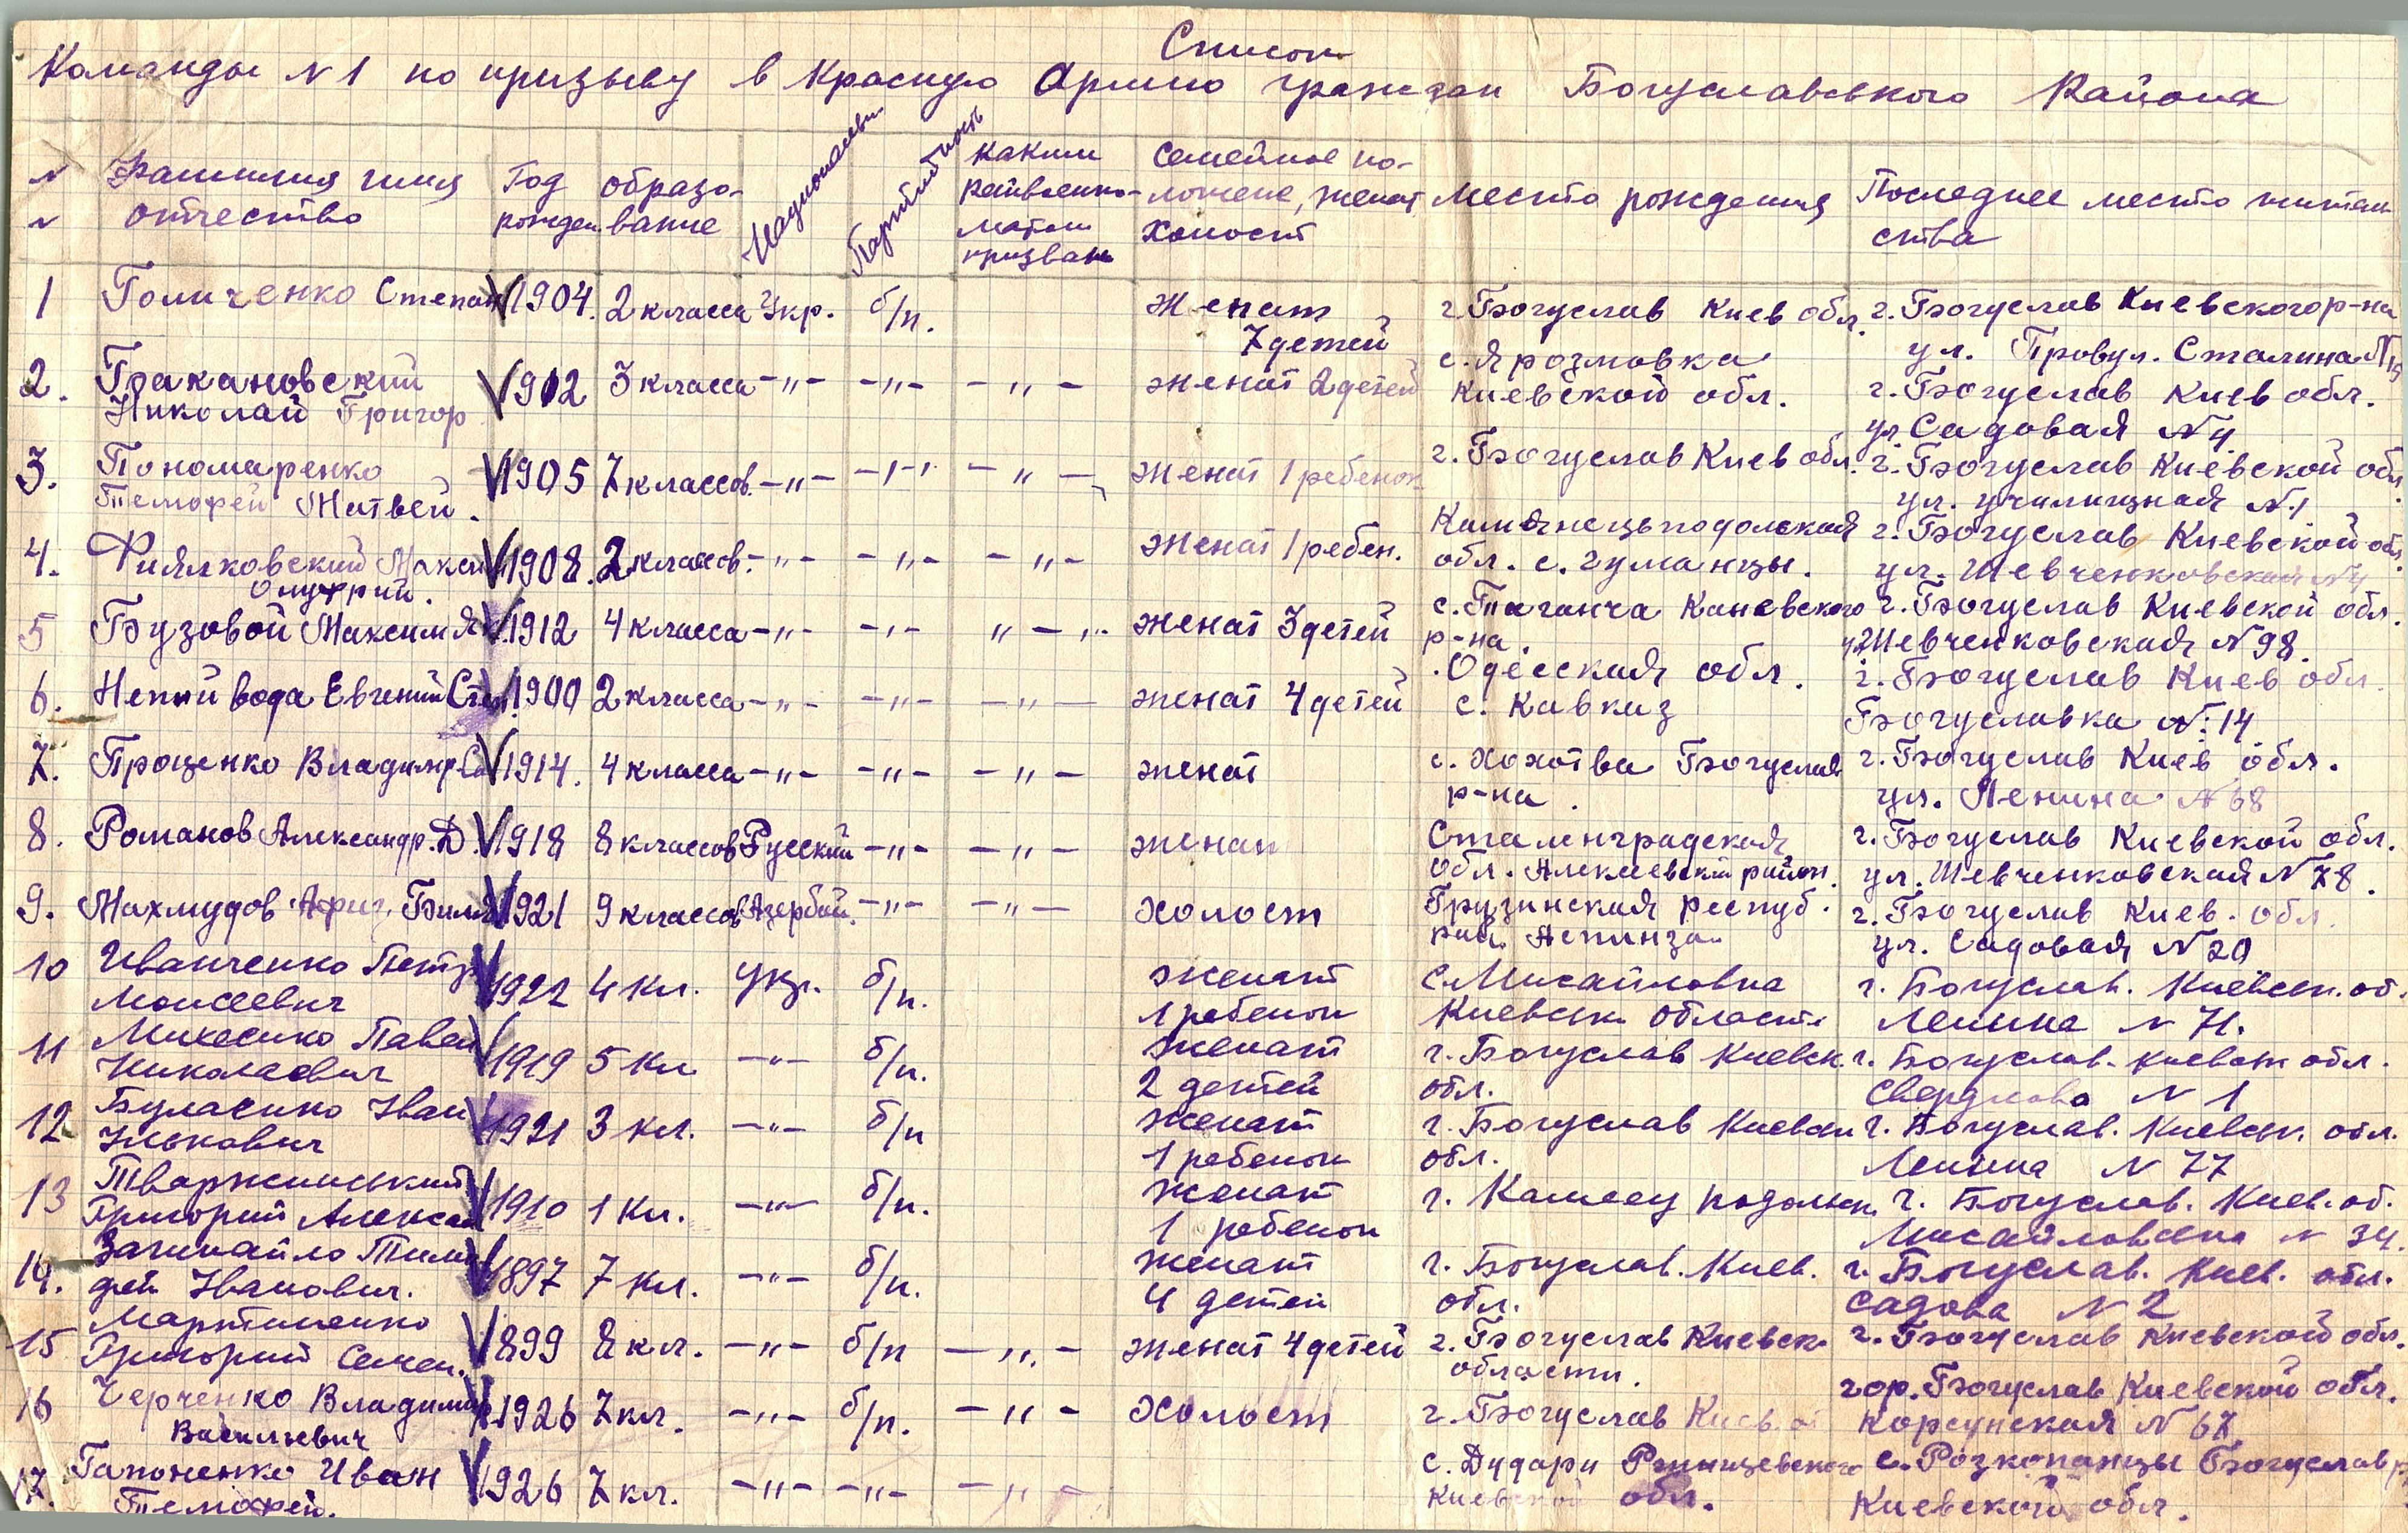 Список
Команды N 1 по призыву в Красную Армию граждан Богуславського Района
N N Фамилия имя отчество Год рожден образо- вание Национальн Партийность каким райвоенко- матом призван Семейное по- ложение, женат, холост место рождения Последнее место житель ства
1 Голиченко Степан 1904. 2 класса Укр. б/п. женат г. Богуслав Киев обл. г. Богуслав Киевского р-на
7 детей ул. Провул. Сталина N 15
2. Бакановский 1912 3 класса -"- -"- -"- женат 2 детей с. Ярозмовка г. Богуслав Киев обл.
Николай Григор Киевской обл. ул. Садовая N 4
3. Пономаренко 1905 7 классов -"- -"- -"- женат 1 ребенок г. Богуслав Киев обл. г. Богуслав Киевской обл
Темофей Матвей. ул. училищная N 1
4. Фиялковский Максим 1908. 2 классов. -"- -"- -"- женат 1 ребен. Камянецьподольская г. Богуслав Киевской обл.
Онуфрий. обл. с. Чуманцы. ул. Шевченковская N 4
5 Бузовой Максим Як 1912 4 класса -"- -"- " -"- женат 3 детей с. Таганча Каневского г. Богуслав Киевской обл.
р-на. ул Шевченковская N 98.
6. Непий вода Евгений Степ. 1900 2 класса -"- -"- -"- женат 4 детей Одесская обл. г. Богуслав Киев обл.
с. Кавказ Богуславка N: 14
7. Проценко Владимир 1914. 4 класса -"- -"- -"- женат с. Хохотва Богуслав г. Богуслав Киев обл.
р-на. ул. Ленина N 68
8. Романов Александр. Д. 1918 8 классов Русский -"- -"- женат Сталенградская г. Богуслав Киевской обл.
обл. Алексевский район. ул. Шевченковская N 78.
9. Махмудов 1921 9 классов Азербай. -"- -"- холост Грузинская респуб. г. Богуслав Киев. обл.
ул. Садовая N 20
10 Иванченко Петр 1922 4 кл. укр. б/п. женат с. Мисайловка г. Богуслав. Киевск. об.
Моисеевич 1 ребенок Киевськ области Ленина N 71.
11 Михесико Павел 1919 5 кл -"- б/п. женат г. Богуслав Киевск. г. Богуслав. киевск обл.
Николаевич 2 детей обл. Свердлова N 1
12 Буласико Іван 1921 3 кл. -"- б/п женат г. Богуслав Киевск г. Богуслав. Киевск. обл.
Ількович 1 ребенок обл. Ленина N 77
13 Тваржинський 1910 1 кл. -"- б/п. женат г. Каменец подольск. г. Богуслав. Киев. об.
Григорий Алексан 1 ребенок N 34.
14. Загинайло Тимо 1897 7 кл. -"- б/п. женат г. Богуслав. Киев. г. Богуслав. Киев. обл.
фей Іванович. 4 детей обл. Садова N 2
15 Мартиненко 1899 8 кл. -"- б/п -"- женат 4 детей г. Богуслав Киевск г. Богуслав Киевской обл.
Григорий Семен. области.
16 Черченко Владимир 1926 7 кл. -"- б/п. -"- холост г. Богуслав Киев. гор. Богуслав Киевской обл.
Васильевич Корсунская N 67
17. Гапоненко Иван 1926 7 кл. -"- -"- -"- с. Дудари Ржищевского с. Розкопанцы Богуслав р
Темофей. Киевской обл. Киевской обл.